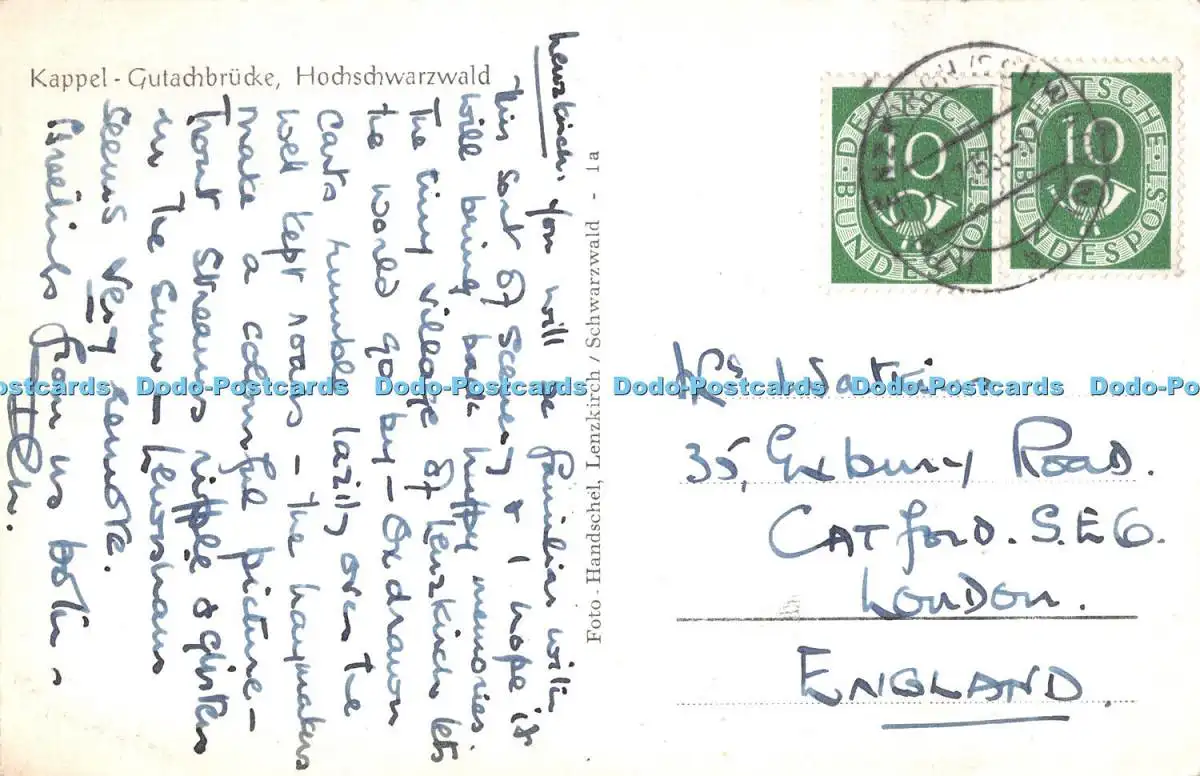 Kappel - Gutachbrücke, Hochschwarzwald
Lenzkirch. You will be familiar with
this sort of scenery & I hope it
will bring back happy memories
The tiny village of Lenzkirch lets
the world go by - Ox drawn
carts rumble lazily over the
well kept roads - the haymakers
make a colourful picture -
Trout streams ripple & glisten
in the sun - Lewisham
seems very remote.
Greetings from us both -
Foto - Handschel, Lenzkirch / Schwarzwald - 1a
DEUTSCHE BUNDESPOST
10
DEUTSCHE BUNDESPOST
10
Mrs Watkins
35, Exbury Road.
CATFORD. S.E6.
LONDON.
ENGLAND.
Dodo-Postcards Dodo-Postcards Dodo-Postcards Dodo-Postcards Dodo-Postcards